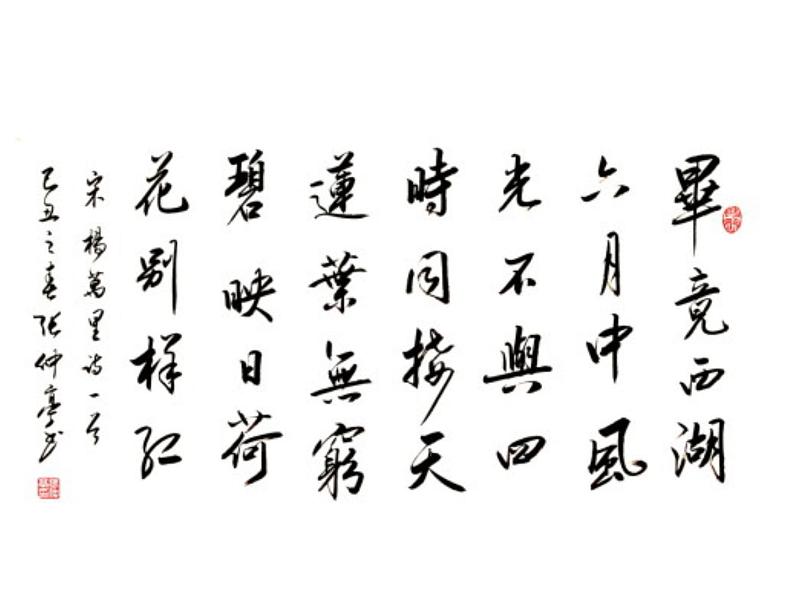 畢竟西湖
六月中風
光不與四
時同接天
蓮葉無窮
碧映日荷
花别樣紅
宋楊萬里诗一首
己丑之春张仲亭书